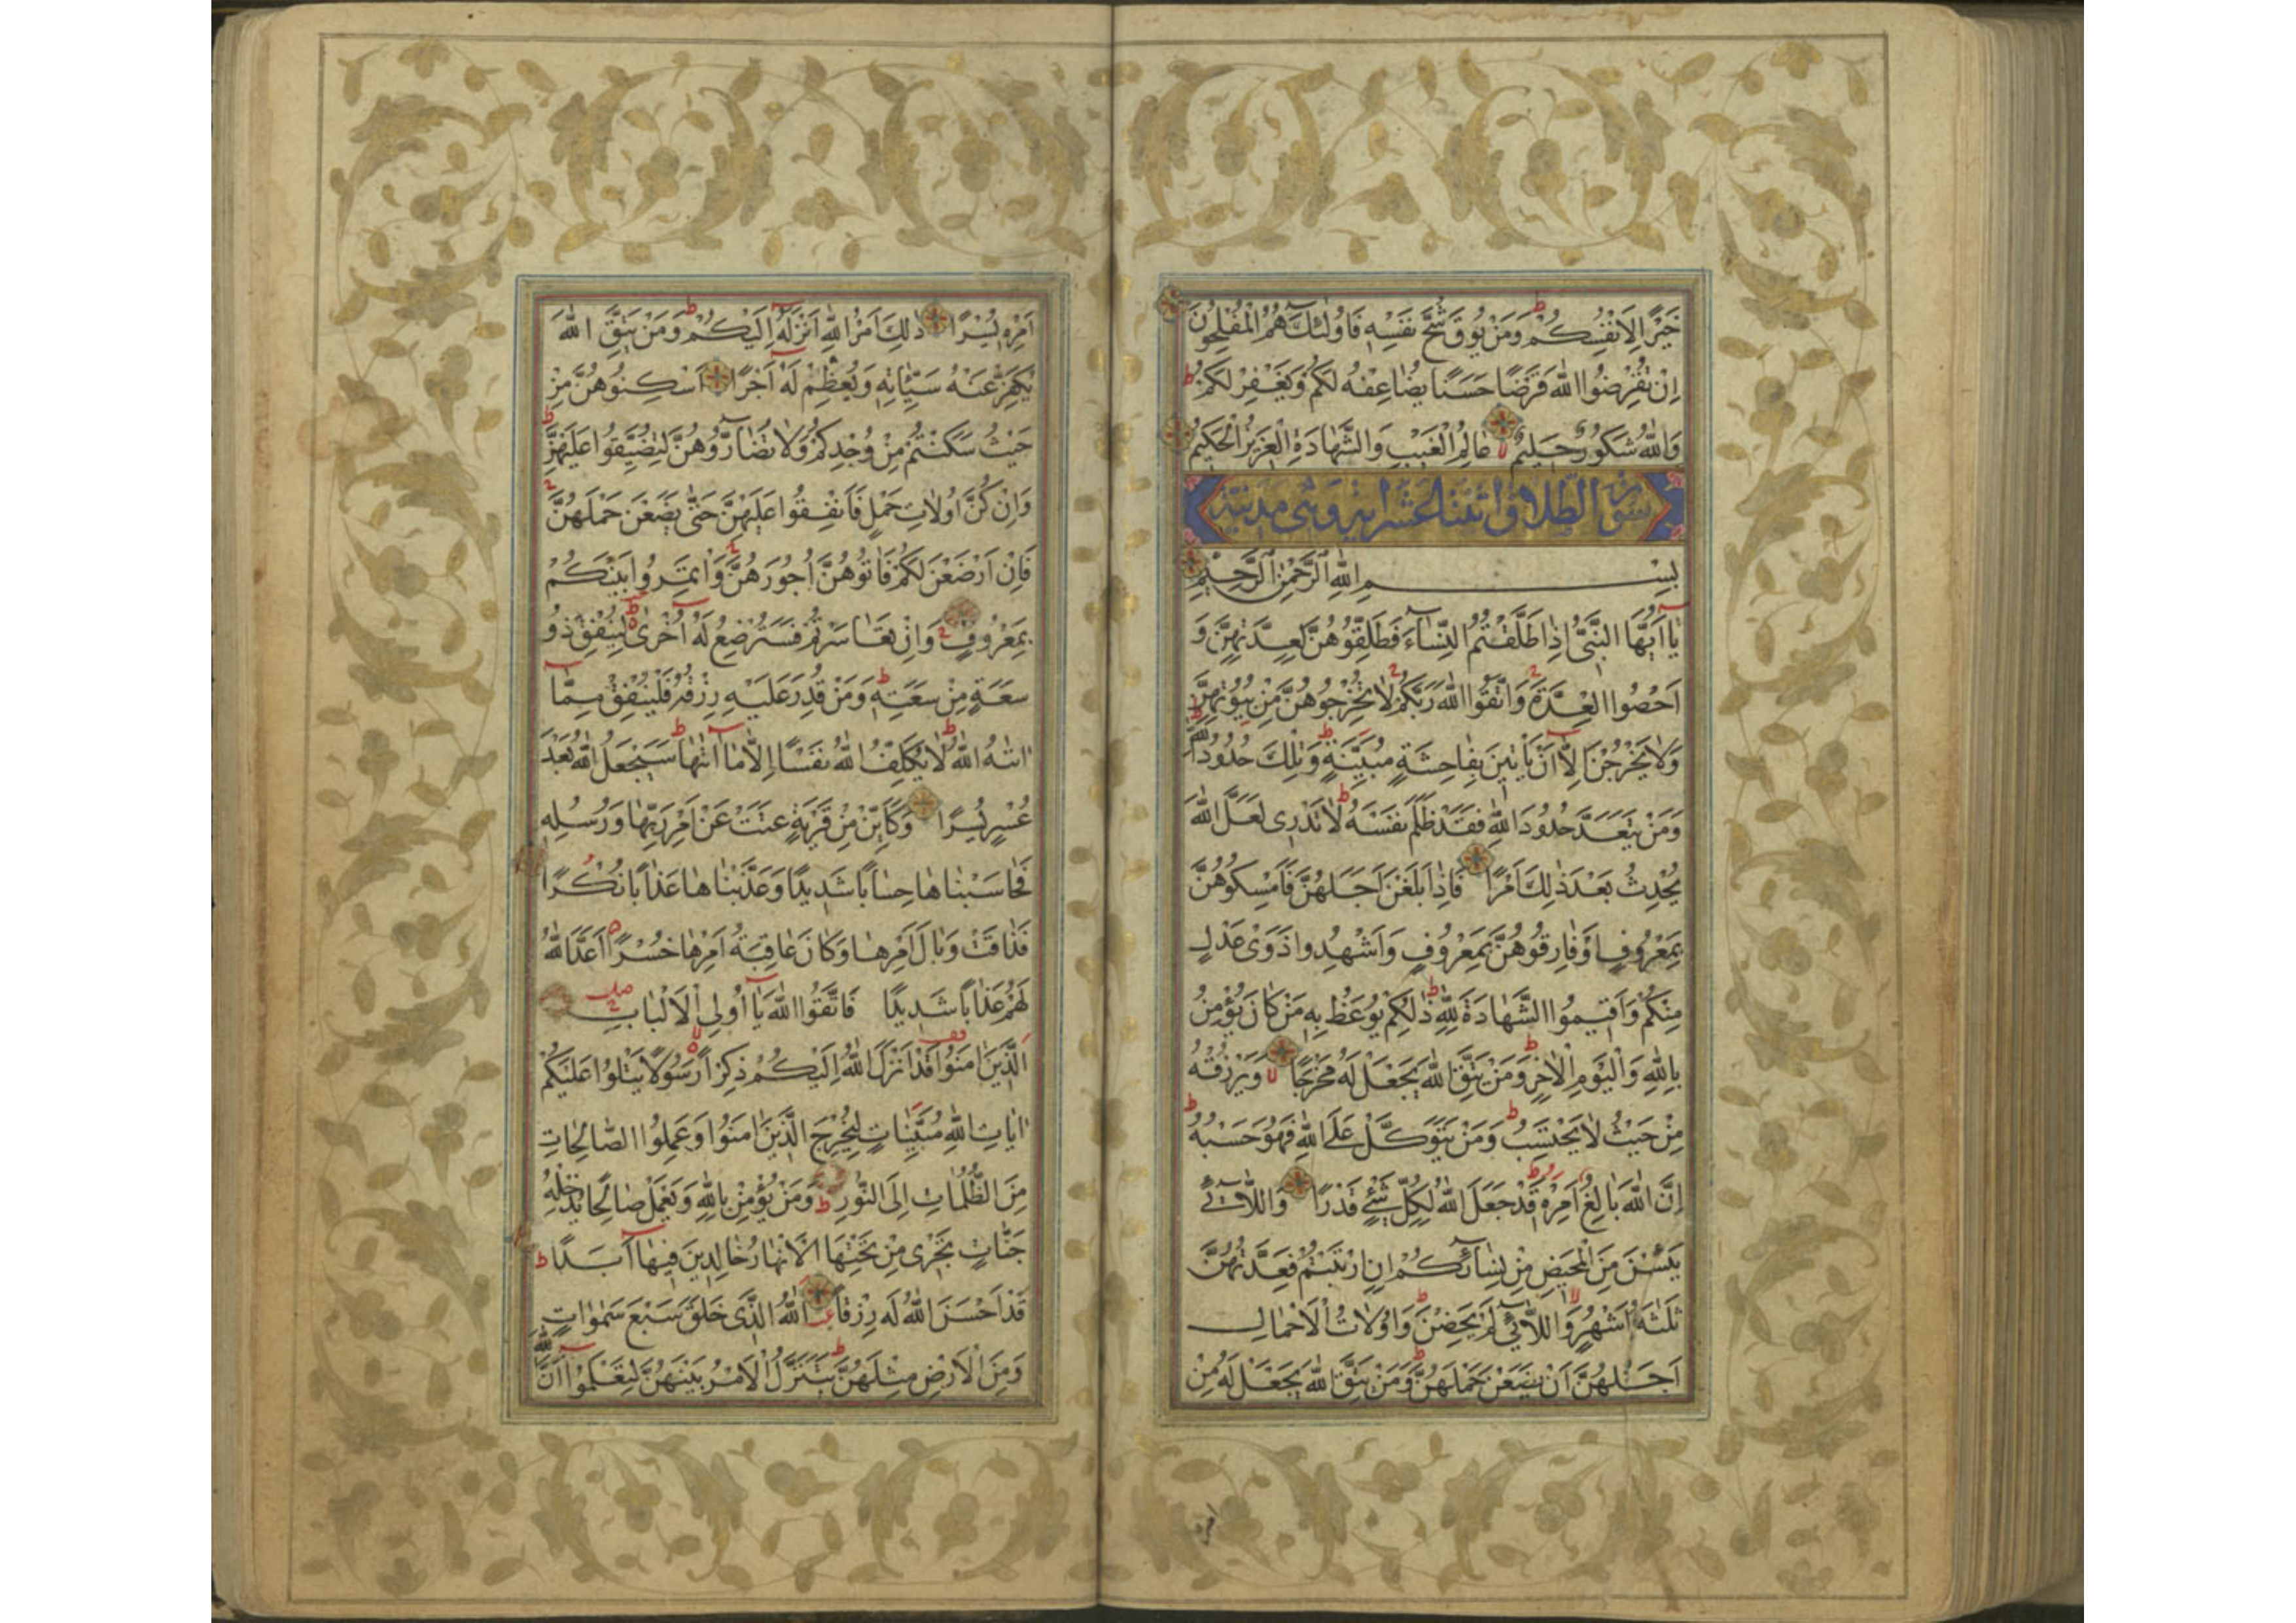 خَيْرًا لِاَنْفُسِكُمْ وَمَنْ يُوقَ شُحَّ نَفْسِهٖ فَاُولٰئِكَ هُمُ الْمُفْلِحُونَ
اِنْ تُقْرِضُوا اللّٰهَ قَرْضًا حَسَنًا يُضَاعِفْهُ لَكُمْ وَيَغْفِرْ لَكُمْ
وَاللّٰهُ شَكُورٌ حَلِيمٌ عَالِمُ الْغَيْبِ وَالشَّهَادَةِ الْعَزِيزُ الْحَكِيمُ
سورة الطلاق اثنتا عشر اية وهى مدنية
بِسْمِ اللّٰهِ الرَّحْمٰنِ الرَّحِيمِ
يَا اَيُّهَا النَّبِىُّ اِذَا طَلَّقْتُمُ النِّسَاءَ فَطَلِّقُوهُنَّ لِعِدَّتِهِنَّ وَ
اَحْصُوا الْعِدَّةَ وَاتَّقُوا اللّٰهَ رَبَّكُمْ لَا تُخْرِجُوهُنَّ مِنْ بُيُوتِهِنَّ
وَلَا يَخْرُجْنَ اِلَّا اَنْ يَاْتِينَ بِفَاحِشَةٍ مُبَيِّنَةٍ وَتِلْكَ حُدُودُ اللّٰهِ
وَمَنْ يَتَعَدَّ حُدُودَ اللّٰهِ فَقَدْ ظَلَمَ نَفْسَهُ لَا تَدْرِى لَعَلَّ اللّٰهَ
يُحْدِثُ بَعْدَ ذٰلِكَ اَمْرًا فَاِذَا بَلَغْنَ اَجَلَهُنَّ فَاَمْسِكُوهُنَّ
بِمَعْرُوفٍ اَوْ فَارِقُوهُنَّ بِمَعْرُوفٍ وَاَشْهِدُوا ذَوَىْ عَدْلٍ
مِنْكُمْ وَاَقِيمُوا الشَّهَادَةَ لِلّٰهِ ذٰلِكُمْ يُوعَظُ بِهِ مَنْ كَانَ يُؤْمِنُ
بِاللّٰهِ وَالْيَوْمِ الْاٰخِرِ وَمَنْ يَتَّقِ اللّٰهَ يَجْعَلْ لَهُ مَخْرَجًا وَيَرْزُقْهُ
مِنْ حَيْثُ لَا يَحْتَسِبُ وَمَنْ يَتَوَكَّلْ عَلَى اللّٰهِ فَهُوَ حَسْبُهُ
اِنَّ اللّٰهَ بَالِغُ اَمْرِهٖ قَدْ جَعَلَ اللّٰهُ لِكُلِّ شَىْءٍ قَدْرًا وَاللَّائِى
يَئِسْنَ مِنَ الْمَحِيضِ مِنْ نِسَائِكُمْ اِنِ ارْتَبْتُمْ فَعِدَّتُهُنَّ
ثَلٰثَةُ اَشْهُرٍ وَاللَّائِى لَمْ يَحِضْنَ وَاُولَاتُ الْاَحْمَالِ
اَجَلُهُنَّ اَنْ يَضَعْنَ حَمْلَهُنَّ وَمَنْ يَتَّقِ اللّٰهَ يَجْعَلْ لَهُ مِنْ
اَمْرِهٖ يُسْرًا ذٰلِكَ اَمْرُ اللّٰهِ اَنْزَلَهُ اِلَيْكُمْ وَمَنْ يَتَّقِ اللّٰهَ
يُكَفِّرْ عَنْهُ سَيِّئَاتِهٖ وَيُعْظِمْ لَهُ اَجْرًا اَسْكِنُوهُنَّ مِنْ
حَيْثُ سَكَنْتُمْ مِنْ وُجْدِكُمْ وَلَا تُضَارُّوهُنَّ لِتُضَيِّقُوا عَلَيْهِنَّ
وَاِنْ كُنَّ اُولَاتِ حَمْلٍ فَاَنْفِقُوا عَلَيْهِنَّ حَتّٰى يَضَعْنَ حَمْلَهُنَّ
فَاِنْ اَرْضَعْنَ لَكُمْ فَاٰتُوهُنَّ اُجُورَهُنَّ وَاْتَمِرُوا بَيْنَكُمْ
بِمَعْرُوفٍ وَاِنْ تَعَاسَرْتُمْ فَسَتُرْضِعُ لَهُ اُخْرٰى لِيُنْفِقْ ذُو
سَعَةٍ مِنْ سَعَتِهٖ وَمَنْ قُدِرَ عَلَيْهِ رِزْقُهُ فَلْيُنْفِقْ مِمَّا
اٰتٰهُ اللّٰهُ لَا يُكَلِّفُ اللّٰهُ نَفْسًا اِلَّا مَا اٰتٰهَا سَيَجْعَلُ اللّٰهُ بَعْدَ
عُسْرٍ يُسْرًا وَكَاَيِّنْ مِنْ قَرْيَةٍ عَتَتْ عَنْ اَمْرِ رَبِّهَا وَرُسُلِهٖ
فَحَاسَبْنَاهَا حِسَابًا شَدِيدًا وَعَذَّبْنَاهَا عَذَابًا نُكْرًا
فَذَاقَتْ وَبَالَ اَمْرِهَا وَكَانَ عَاقِبَةُ اَمْرِهَا خُسْرًا اَعَدَّ اللّٰهُ
لَهُمْ عَذَابًا شَدِيدًا فَاتَّقُوا اللّٰهَ يَا اُولِى الْاَلْبَابِ
الَّذِينَ اٰمَنُوا قَدْ اَنْزَلَ اللّٰهُ اِلَيْكُمْ ذِكْرًا رَسُولًا يَتْلُوا عَلَيْكُمْ
اٰيَاتِ اللّٰهِ مُبَيِّنَاتٍ لِيُخْرِجَ الَّذِينَ اٰمَنُوا وَعَمِلُوا الصَّالِحَاتِ
مِنَ الظُّلُمَاتِ اِلَى النُّورِ وَمَنْ يُؤْمِنْ بِاللّٰهِ وَيَعْمَلْ صَالِحًا يُدْخِلْهُ
جَنَّاتٍ تَجْرِى مِنْ تَحْتِهَا الْاَنْهَارُ خَالِدِينَ فِيهَا اَبَدًا
قَدْ اَحْسَنَ اللّٰهُ لَهُ رِزْقًا اَللّٰهُ الَّذِى خَلَقَ سَبْعَ سَمٰوَاتٍ
وَمِنَ الْاَرْضِ مِثْلَهُنَّ يَتَنَزَّلُ الْاَمْرُ بَيْنَهُنَّ لِتَعْلَمُوا اَنَّ اللّٰهَ